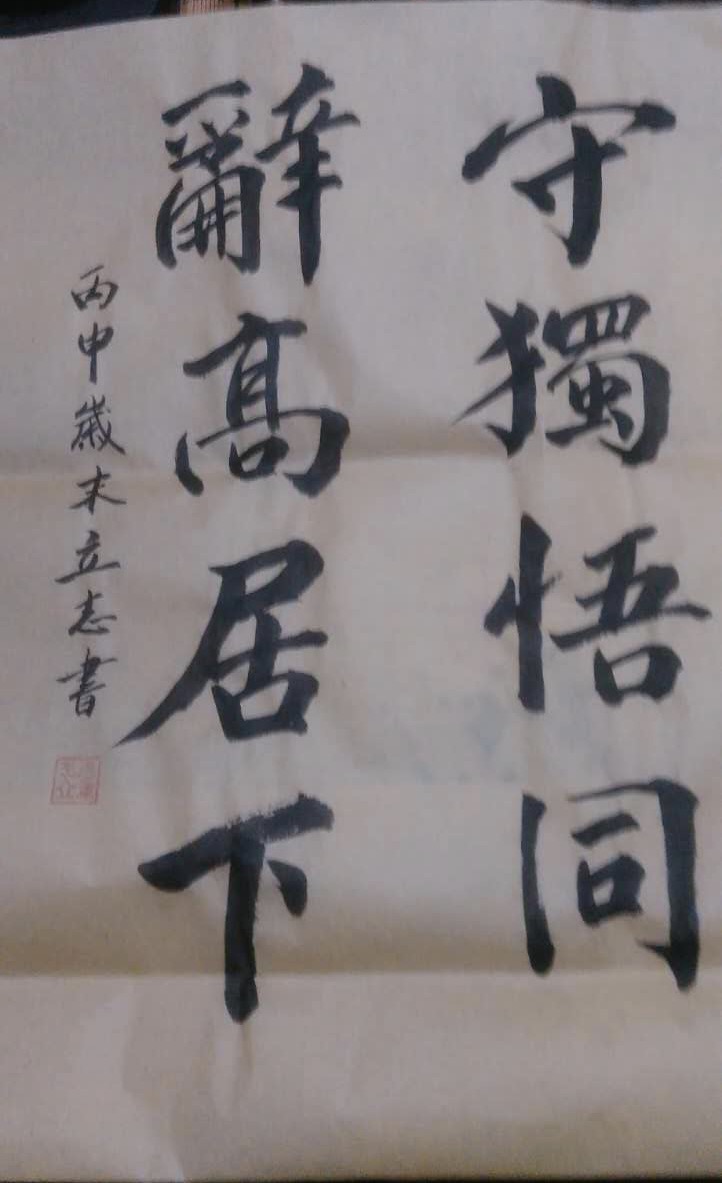 守獨悟同
辭高居下
丙申歲末立志書